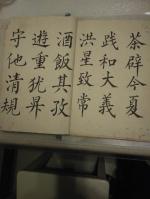 茶辟今夏
践和大義
洪星致常
酒飯其孜
遊重犹昇
守他清規